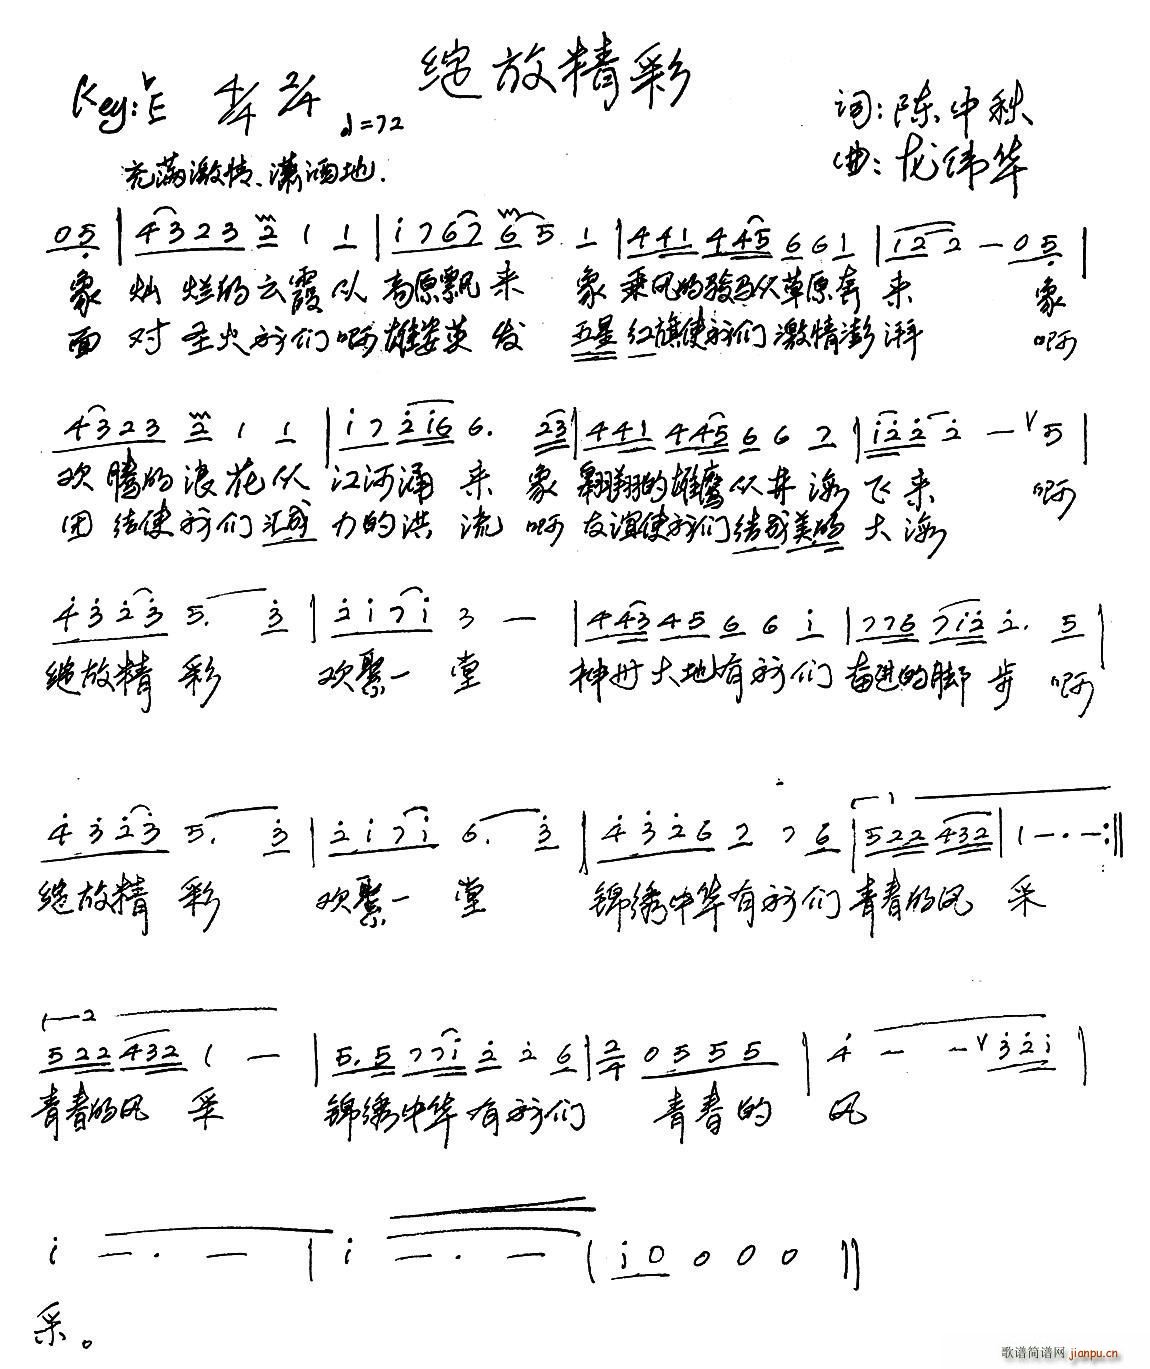 绽放精彩
Key:♭E 4/4 2/4 ♩=72
词:陈中秋
曲:龙纬华
充满激情、潇洒地.
05 | 4323 2 1 1 | i767 65. 1 | 441 445 6 6 1 | i2 2 - 05 |
象 灿烂的云霞从高原飘来 象乘风的骏马从草原奔来 象
面对圣火我们啊雄姿英发 五星红旗使我们激情澎湃 啊
4323 2 1 1 | i7 2i6 6. 23 | 441 445 6 6 2 | i22 2 - V 5 |
欢腾的浪花从江河涌来 象翱翔的雄鹰从井海飞来 啊
团结使我们汇成力的洪流 啊友谊使我们结成美的大海
4323 5. 3 | 2i7i 3 - | 443 45 6 6 i | 776 7i2 2. 5 |
绽放精彩 欢聚一堂 神州大地有我们奋进的脚步 啊
4323 5. 3 | 2i7i 6. 3 | 4326 2 7 6 | 1 522 432 | 1 - . - :||
绽放精彩 欢聚一堂 锦绣中华有我们青春的风采
2 522 432 1 - | 5.5 77i 2 2 6 | 2/4 0555 | 4 - - V 32i |
青春的风采 锦绣中华有我们 青春的风
i - . - | i - . - | i0 0 0 0 ||
采。
歌谱简谱网 jianpu.cn